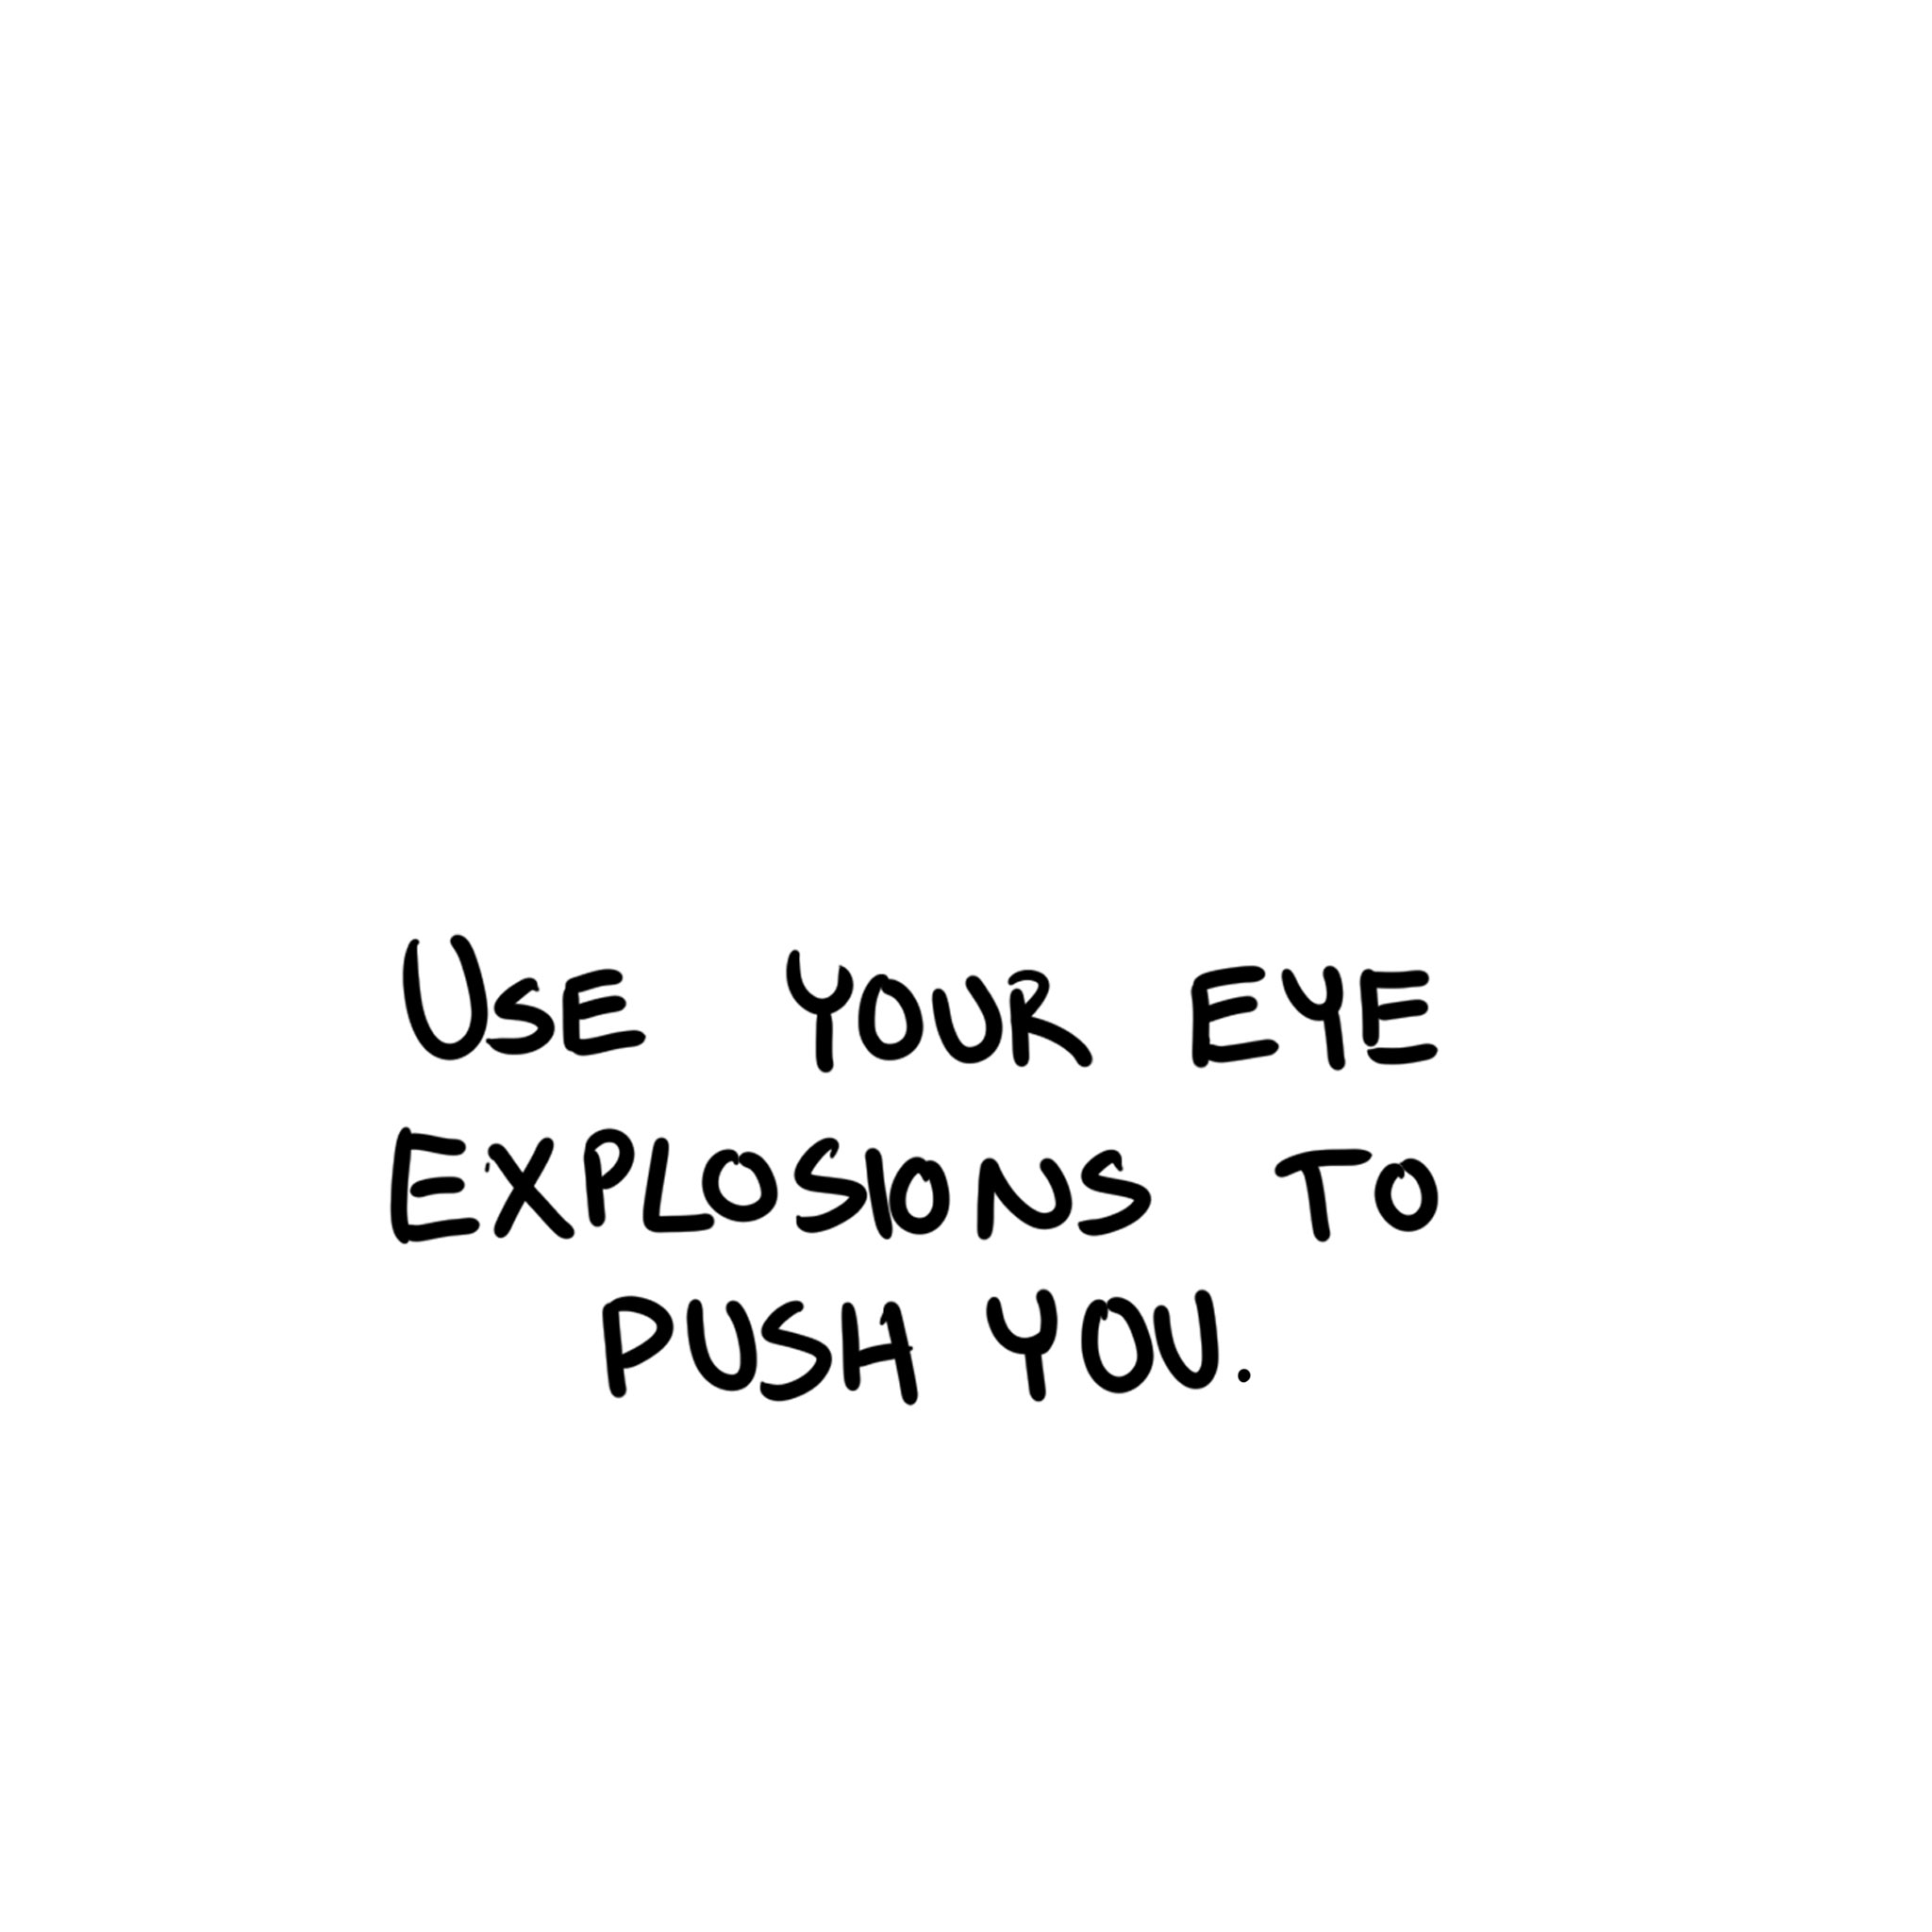 USE YOUR EYE
EXPLOSIONS TO
PUSH YOU.